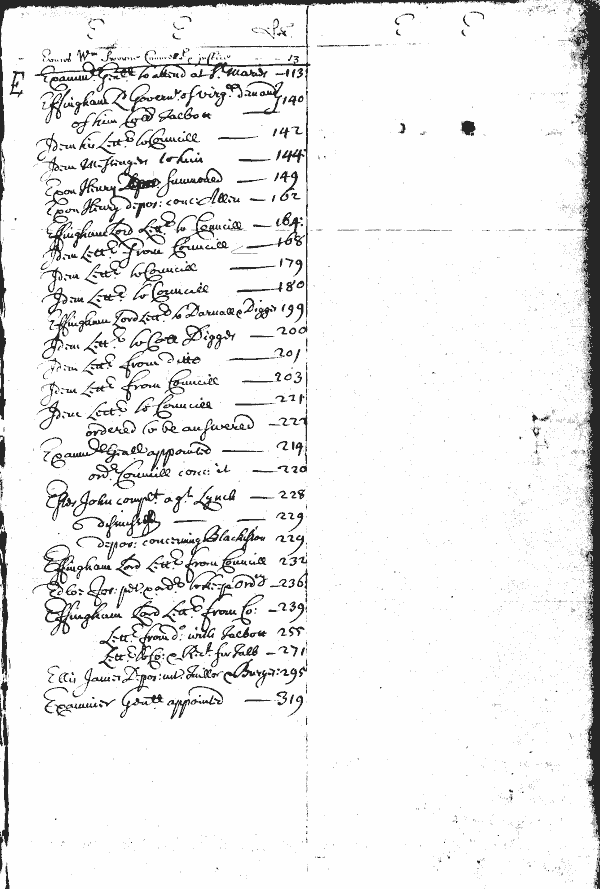 E E
E E
E
Wm Sworne Councellr & justice 13
Examinr Genll to attend at St Maries — 113
Effingham Ld Governr of Virga demand
of him Coll Talbott — 140
Idem his Lettr to Councill — 142
Idem Messenger to him — 144
Exon Henry summoned — 149
Exon Henry depos: conc: Allen — 162
Effingham Lord Lettr to Councill — 164:
Idem Lettr from Councill — 168
Idem Lettr to Councill — 179
Idem Lettr to Councill — 180
Effingham Lord Lettr to Darnall & Digges 199
Idem Lettr to Coll Digges — 200
Idem Lettr from ditto — 201
Idem Lettr from Councill — 203
Idem Lettr to Councill — 221
ordered to be answered — 222
Examinr Genll appointed — 219
ordr Councill conc: it — 220
John complt agt Lynch — 228
dismissed — — 229
depos: concerning Blackiston 229
Effingham Lord Lettr from Councill 232
Jos: petr 236
Effingham Lord Lettr from Co: — 239
Lettr from do: with Talbott 255
Lettr to Co: & Rect for Talb — 271
Ellis James Depos: & Burges: 295
Examinier Genll appointed — 319